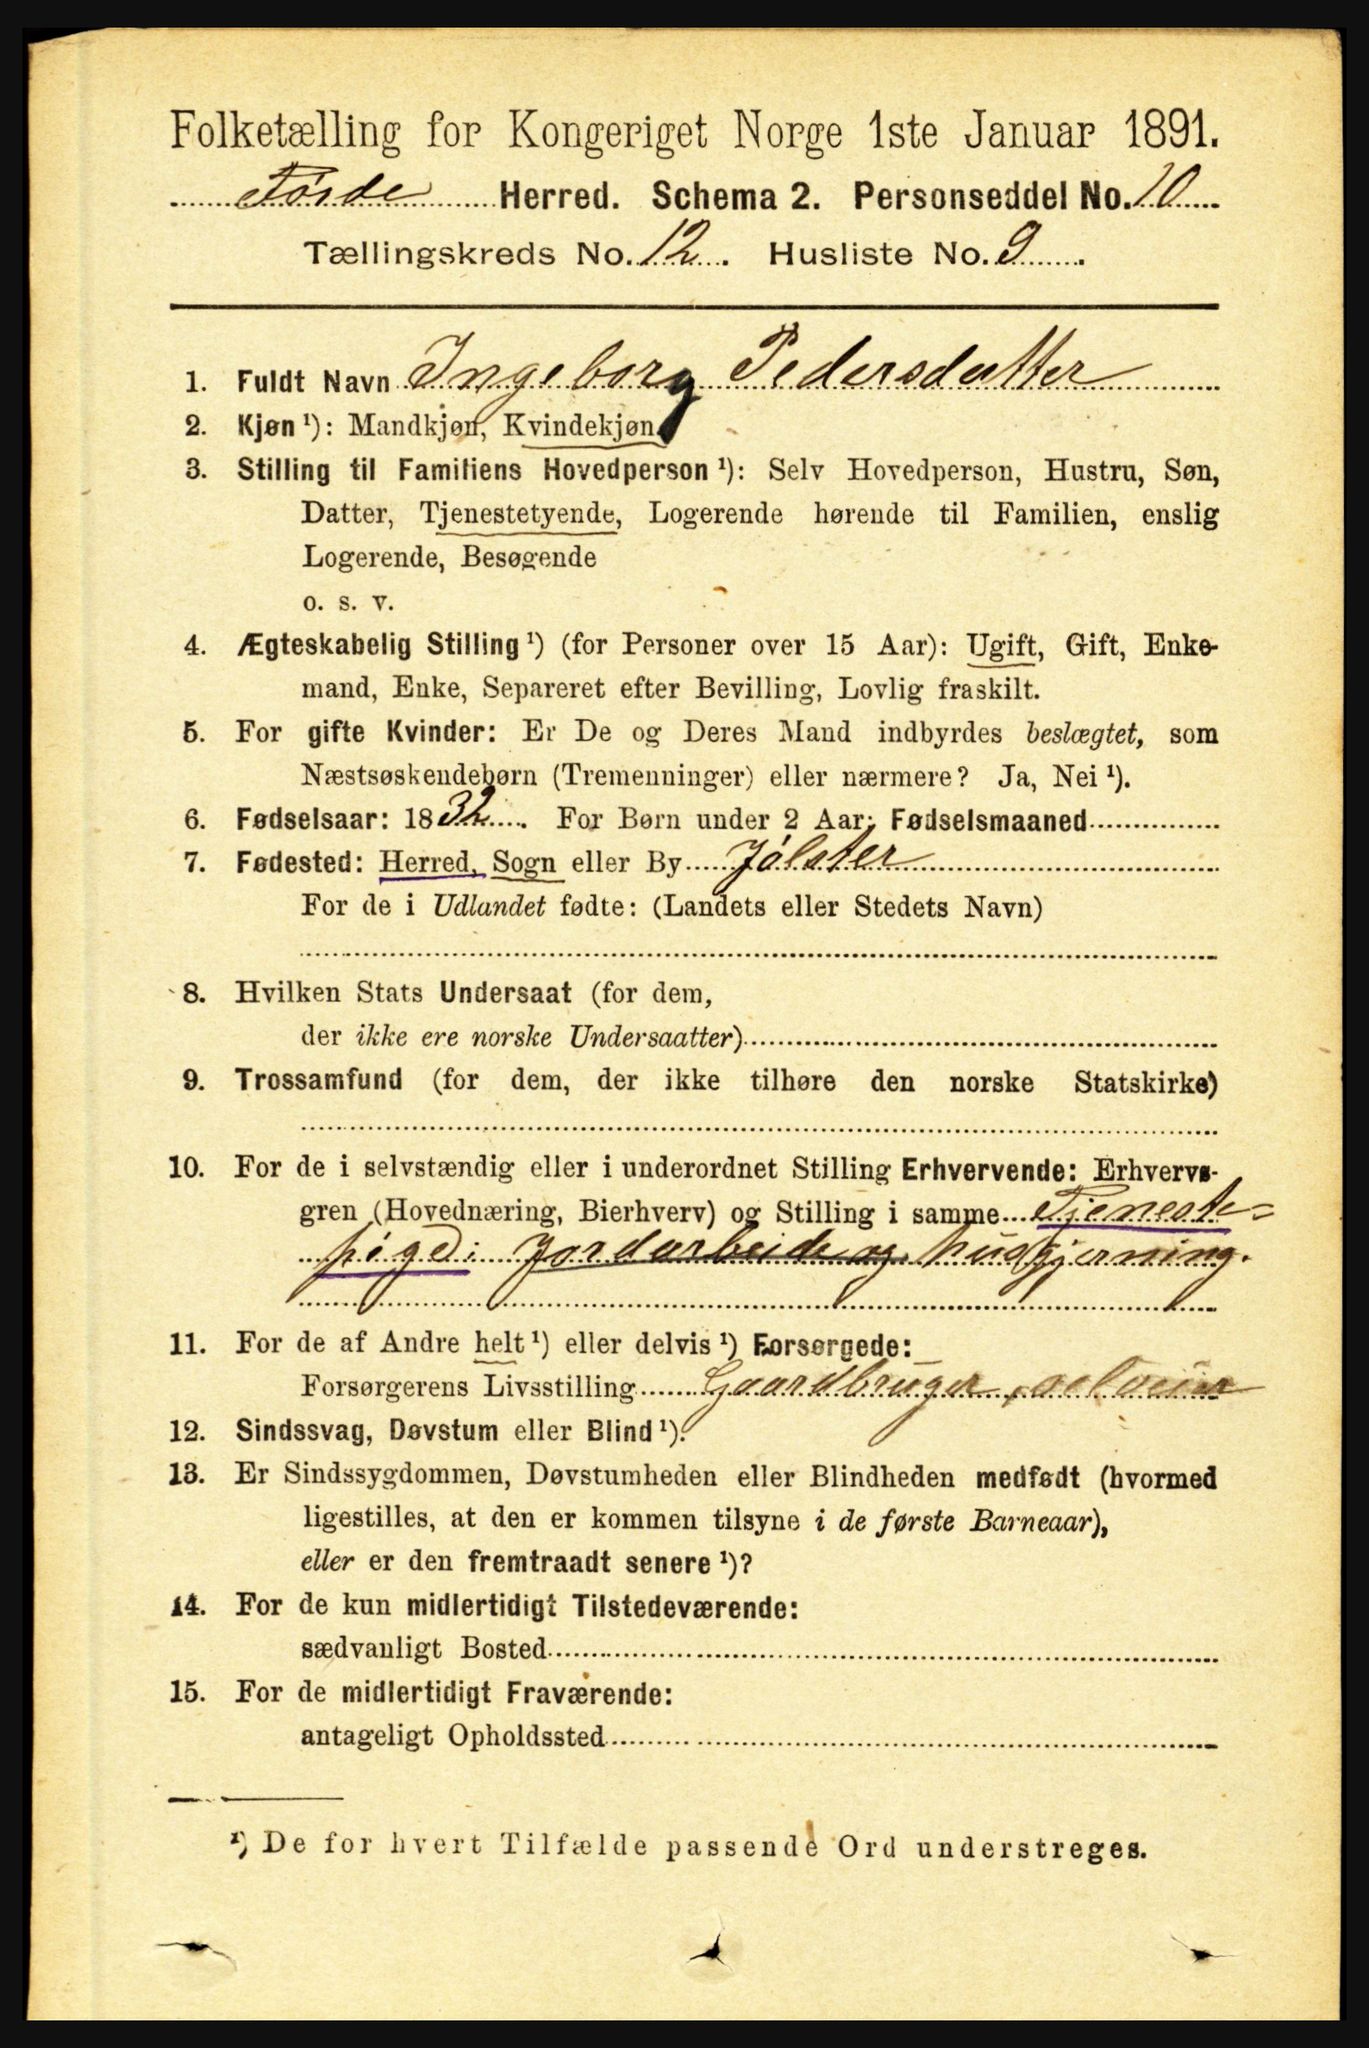 Folketælling for Kongeriget Norge 1ste Januar 1891.
Førde Herred. Schema 2. Personseddel No. 10
Tællingskreds No. 12. Husliste No. 9.
1. Fuldt Navn Ingeborg Pedersdatter
2. Kjøn ¹): Mandkjøn, Kvindekjøn
3. Stilling til Familiens Hovedperson ¹): Selv Hovedperson, Hustru, Søn,
Datter, Tjenestetyende, Logerende hørende til Familien, enslig
Logerende, Besøgende
o. s. v.
4. Ægteskabelig Stilling ¹) (for Personer over 15 Aar): Ugift, Gift, Enke-
mand, Enke, Separeret efter Bevilling, Lovlig fraskilt.
5. For gifte Kvinder: Er De og Deres Mand indbyrdes beslægtet, som
Næstsøskendebørn (Tremenninger) eller nærmere? Ja, Nei ¹).
6. Fødselsaar: 1832. For Børn under 2 Aar: Fødselsmaaned
7. Fødested: Herred, Sogn eller By Jølster
For de i Udlandet fødte: (Landets eller Stedets Navn)
8. Hvilken Stats Undersaat (for dem,
der ikke ere norske Undersaatter)
9. Trossamfund (for dem, der ikke tilhøre den norske Statskirke)
10. For de i selvstændig eller i underordnet Stilling Erhvervende: Erhvervs-
gren (Hovednæring, Bierhverv) og Stilling i samme Tjeneste-
pige: Jordarbeide og husgjerning.
11. For de af Andre helt ¹) eller delvis ¹) Forsørgede:
Forsørgerens Livsstilling Gaardbruger, selveier
12. Sindssvag, Døvstum eller Blind ¹).
13. Er Sindssygdommen, Døvstumheden eller Blindheden medfødt (hvormed
ligestilles, at den er kommen tilsyne i de første Barneaar),
eller er den fremtraadt senere ¹)?
14. For de kun midlertidigt Tilstedeværende:
sædvanligt Bosted
15. For de midlertidigt Fraværende:
antageligt Opholdssted
¹) De for hvert Tilfælde passende Ord understreges.